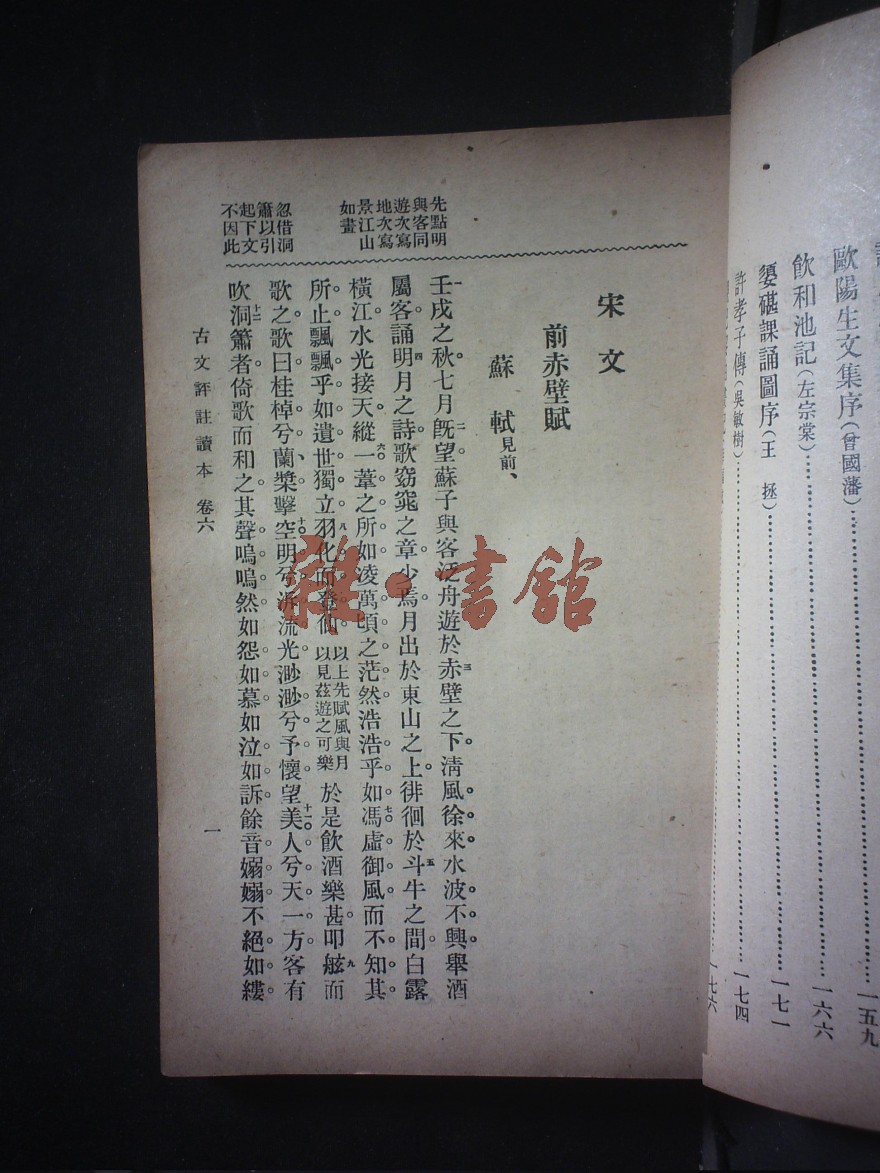 歐陽生文集序(曾國藩)⋯⋯一五九
飲和池記(左宗棠)⋯⋯一六六
媭碪課誦圖序(王拯)⋯⋯一七一
許孝子傳(吳敏樹)⋯⋯一七四
一七六
宋文
前赤壁賦
蘇軾見前、
先點明
與客同
遊次寫
地次寫
景江山
如畫
忽借洞
簫以引
起下文
不因此
壬戌之秋七月既望蘇子與客泛舟遊於赤壁之下清風徐來水波不興舉酒
屬客誦明月之詩歌窈窕之章少焉月出於東山之上徘徊於斗牛之間白露
橫江水光接天縱一葦之所如凌萬頃之茫然浩浩乎如馮虛御風而不知其
所止飄飄乎如遺世獨立羽化而登仙以上先賦風與月以見茲遊之可樂於是飲酒樂甚叩舷而
歌之歌曰桂棹兮蘭槳擊空明兮泝流光渺渺兮予懷望美人兮天一方客有
吹洞簫者倚歌而和之其聲嗚嗚然如怨如慕如泣如訴餘音嫋嫋不絕如縷
古文評註讀本 卷六
一
雜·書館